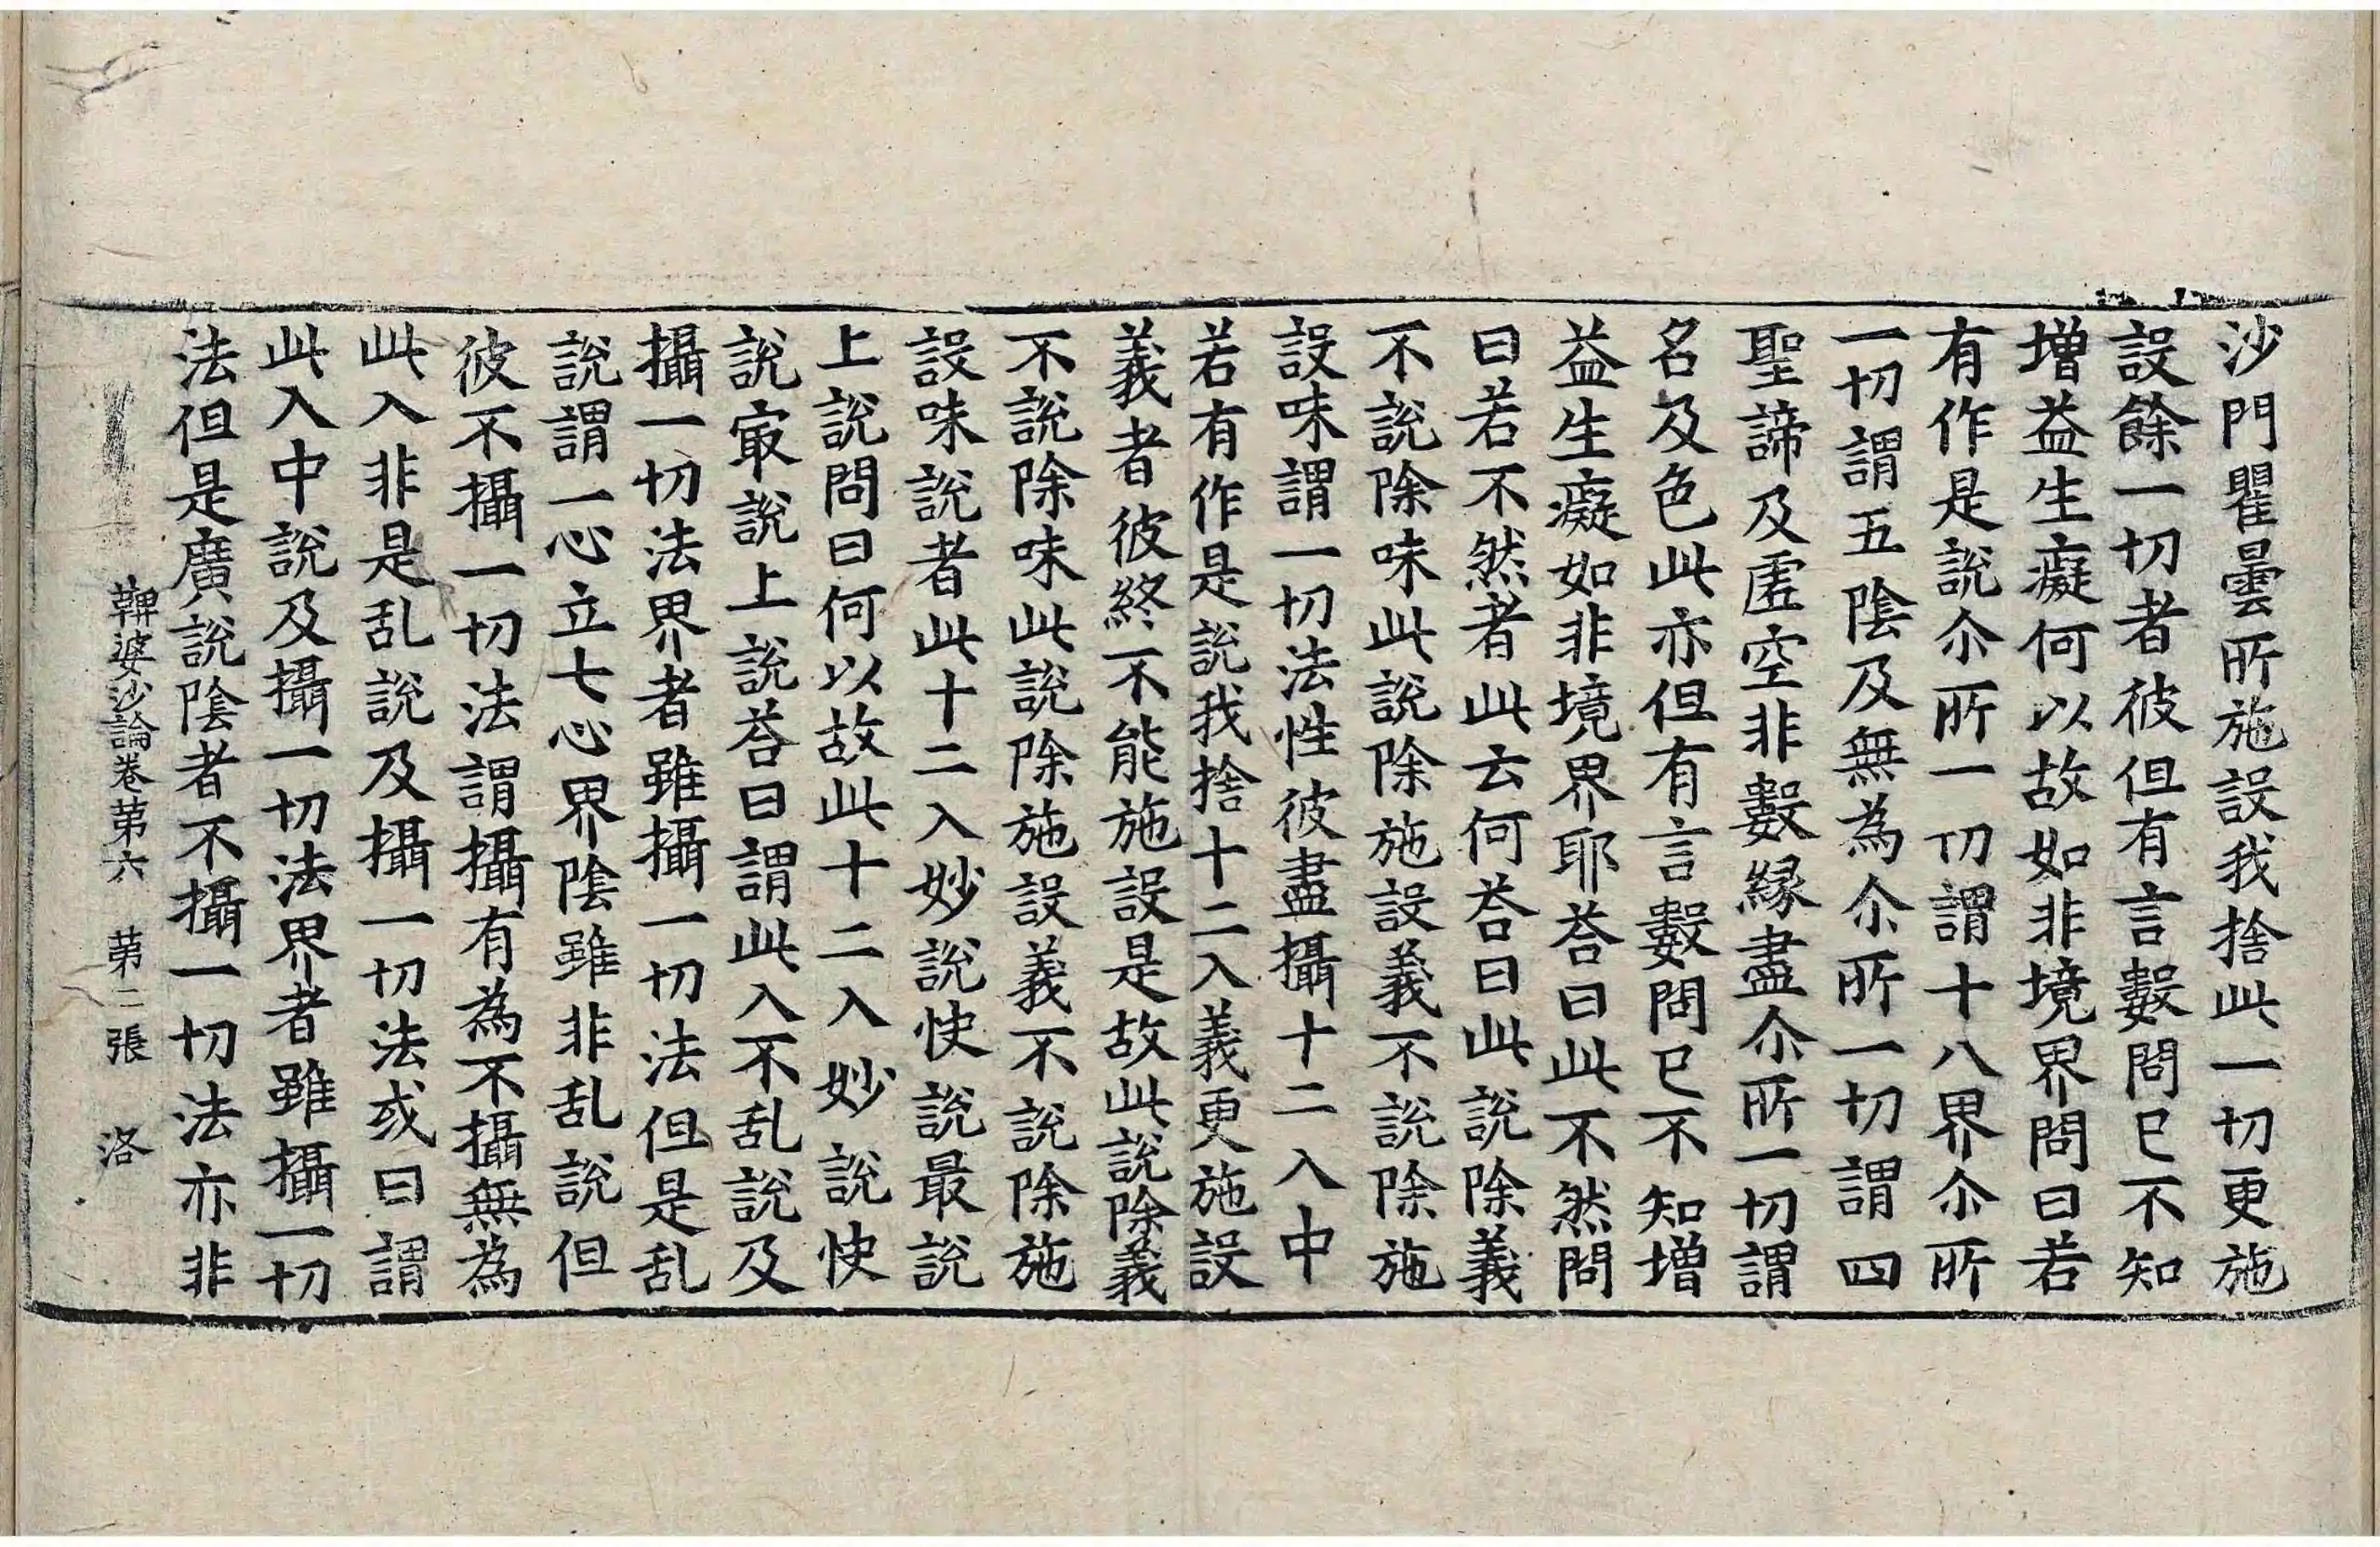 沙門瞿曇所施設我捨此一切更施
設餘一切者彼但有言數問已不知
增益生癡何以故如非境界問曰若
有作是說尒所一切謂十八界尒所
一切謂五陰及無為尒所一切謂四
聖諦及虛空非數緣盡尒所一切謂
名及色此亦但有言數問已不知增
益生癡如非境界耶荅曰此不然問
曰若不然者此云何荅曰此說除義
不說除味此說除施設義不說除施
設味謂一切法性彼盡攝十二入中
若有作是說我捨十二入義更施設
義者彼終不能施設是故此說除義
不說除味此說除施設義不說除施
設味說者此十二入妙說快說最說
上說問曰何以故此十二入妙說快
說㝡說上說荅曰謂此入不乱說及
攝一切法界者雖攝一切法但是乱
說謂一心立七心界陰雖非乱說但
彼不攝一切法謂攝有為不攝無為
此入非是乱說及攝一切法或曰謂
此入中說及攝一切法界者雖攝一切
法但是廣說陰者不攝一切法亦非
鞞婆沙論卷第六　第二張　洛